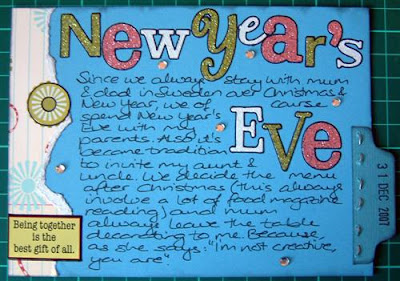 New Year's
Since we always stay with mum
& dad in Sweden over Christmas &
New Year, we of course
spend New Year's
Eve with my
parents. Also it's
become tradition
to invite my aunt &
uncle. We decide the menu
after Christmas (this always
involve a lot of food magazine
reading) and mum
always leave the table
decorating to me. Because
as she says: "I'm not creative,
you are"
Eve
31 DEC 2007
Being together
is the
best gift of all.